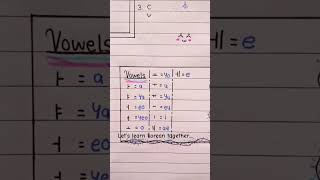 3. C
V
Vowels ㅛ = yo ㅔ = e
ㅏ = a ㅜ = u
ㅑ = ya ㅠ = yu
ㅓ = eo ㅡ = eu
ㅕ = yeo ㅣ = i
ㅗ = o ㅐ = ae
Let's learn Korean together...
Vowels
ㅏ = a
ㅑ = ya
ㅓ = eo
ㅔ = e